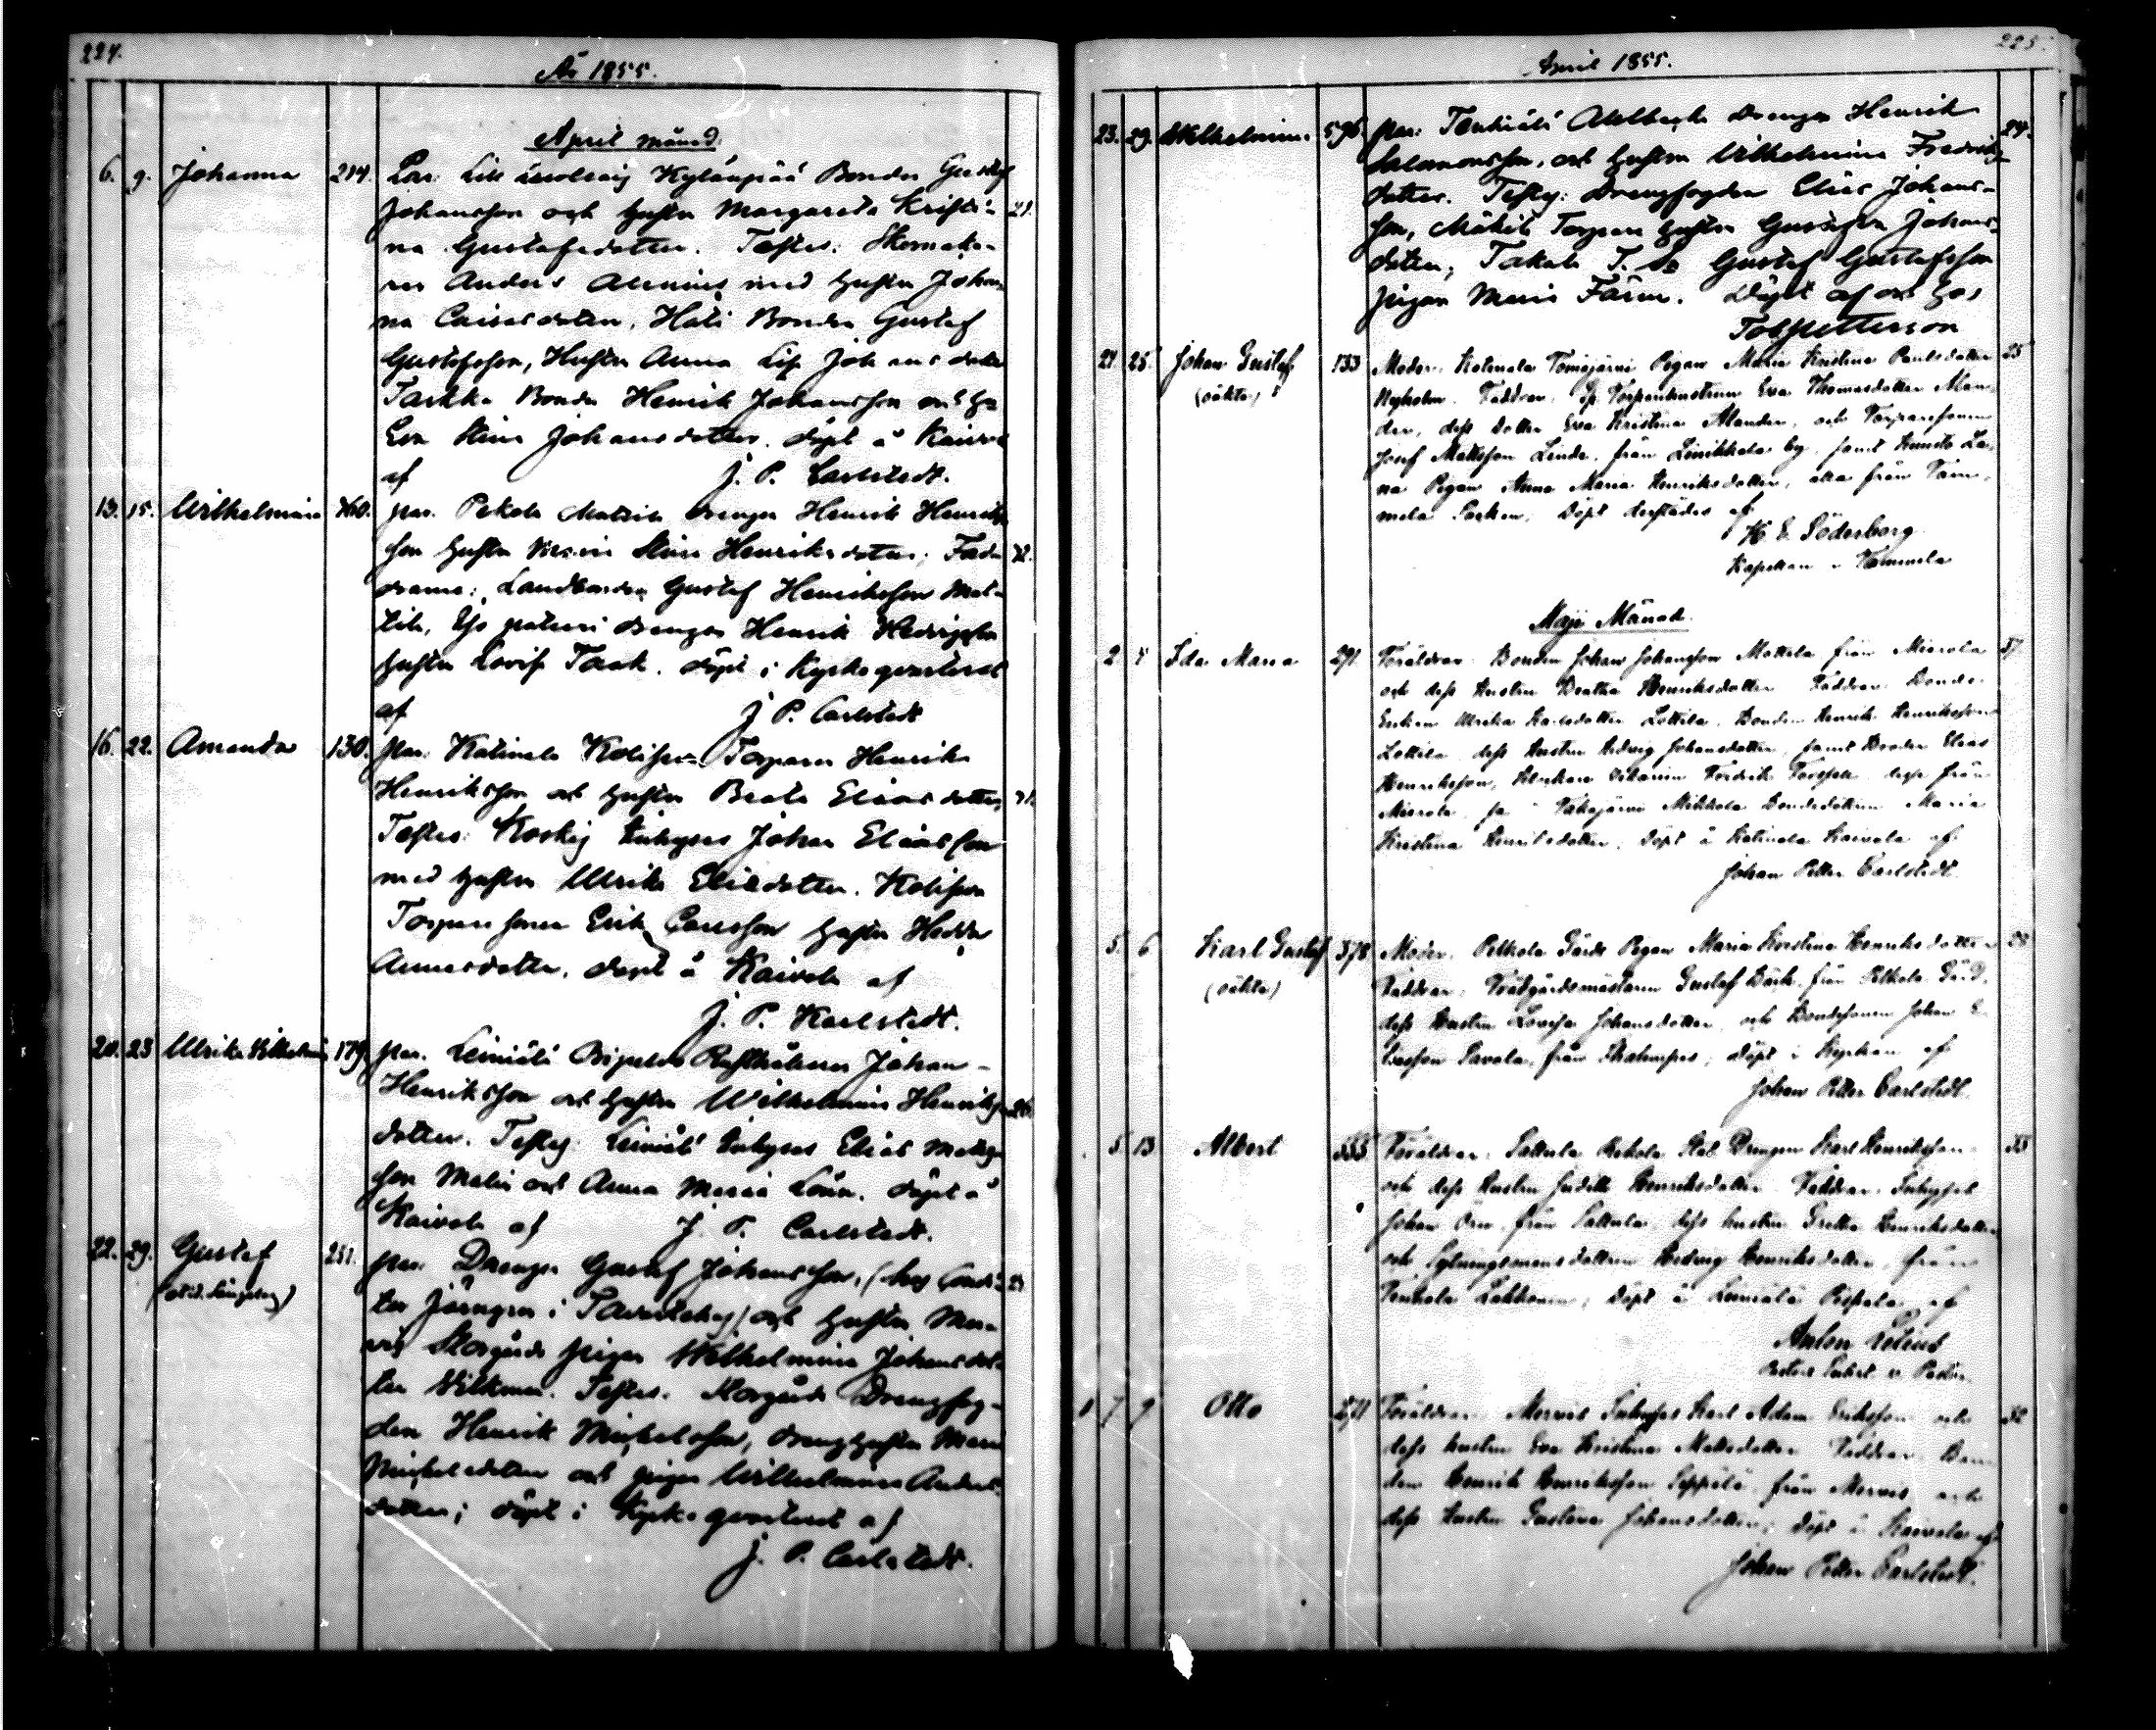 224.
År 1855.
April månad.
6. 9. Johanna 214. Par: Lill Kyläupää Bonden Gustaf
Johansson och hustru Margareta Kristi- 29.
na Gustafsdotter. Testes: Skomaka-
ren Anders Alenius med hustru Johan-
na Caisasdotter, Bonden Gustaf
Gustafsson, Hustru Anna Lis. Johansdotter
Bonden Henrik Johansson och hu
Eva Stina Johansdotter. döpt å Kaivola
af J. P. Carlstedt.
13. 15. Wilhelmina 460. par. Pekola Mattila drengen Henrik Henriks
son hustru Maria Stina Henriksdotter; Fad- 32.
drarne: Landbonden Gustaf Henriksson Mat-
tila, drengen Henrik
hustru Lovisa Task. döpt i Kyrkoqvarteret
af J. P. Carlstedt
16. 22. Amanda 130. par: Katinala Torparen Henrik
Henriksson och hustru Beata Eliasdotter, 31.
Testes: Inhyses Johan Eliasson
med hustru Ulrika Eliedotter.
Torparesonen Erik Carlsson hustru Hedda
Annasdotter. döpt å Kaivola af
J. P. Karlstedt.
20. 23 Ulrika Wilhelmina 179. par. Leiniälä Rusthållaren Johan
Henriksson och hustru Wilhelmina Henriks 26.
dotter. Testes: Leiniälä Inhyses Elias Matts
son Malin och Anna Maria Löün. döpt å
Kaivola af J. P. Carlstedt.
22. 29. Gustaf 251. par. Drengen Gustaf Johansson, (hos
i Tavastehus) och hustru
Storgårds pigan Wilhelmina Johansdot-
ter Wilkman. Testes. Storgårds Drengfog-
den Henrik Michelsson, drenghustru Maria
Michelsdotter och pigan Wilhelmina Anders
dotter; döpt i Kyrkoqvarteret af
J. P. Carlstedt.
225.
April 1855.
23. 29. Wilhelmina 596 par: Ahlbacka drengen Henrik 24.
Salomonsson, och hustru Wilhelmina Fredriks-
dotter. Testes: Drengfogden Elias Johans-
son, Mäkilä Torpare hustru Gustafva Johans-
dotter, Takala T. So Gustaf Gustafsson
pigan Maria Färm. döpt af
Tob. Petterson
21 25. Johan Gustaf 133 Moder: Katinala Tömäjärvi Pigan Maria Kristina Paulsdotter 25
(oäkta) Nyholm. Faddrar: Sp. Torparehustrun Eva Thomasdotter Alan-
der, dess dotter Eva Kristina Alander, och Torparesonen
Josef Mattsson Linde, från Linikkala by, samt
na Pigan Anna Maria Henriksdotter, alla från Tam-
mela Socken, Döpt derstädes af
H. E. Söderborg
Kapellan i Tammela
Maji Månad.
2 4 Ida Maria 291 Föräldrar: Bonden Johan Johansson Mattila från Miemola 37
och dess hustru Beatha Henriksdotter Faddrar: Bonde-
Enkan Ulrika Kaisasdotter Lottila, Bonden Henrik Henriksson
Lottila, dess hustru Hedvig Johansdotter, samt Broder Elias
Henriksson, Klockare Vikarien Fredrik Forssell, dessa från
Miemola, samt Takajärvi Mikkola Bondedottern Maria
Kristina Henriksdotter. Döpt å Katinala Kaivola af
Johan Petter Carlstedt
5. 6 Karl Gustaf 378 Moder: Pelkola Gårds Pigan Maria Kristina Henriksdotter 28
(oäkta) Faddrar: Trädgårdsmästaren Gustaf Bäck från Pelkola Gård,
dess hustru Lovisa Johansdotter, och Bondesonen Johan
Savola, från; döpt i Kyrkan af
Johan Petter Carlstedt
5 13 Albert 555 Föräldrar: Sattula Rekola Stat Drengen Karl Henriksson 33
och dess hustru Judith Henriksdotter Faddrar: Inhyses
Johan Örn, från Sattula, dess hustru Gretha Henriksdotter
och Sytningsmansdottren Hedvig Henriksdotter, från
Tenhola; döpt å Leiniälä af
Anton Helius
7 9 Otto 271 Föräldrar: Mervis Inhyses Karl Adam Eriksson och 32
dess hustru Eva Kristina Mattsdotter Faddrar: Bon-
den Henrik Henriksson Seppälä från Mervis, och
dess hustru Gustava Johansdotter; döpt å Kaivola af
Johan Petter Carlstedt.